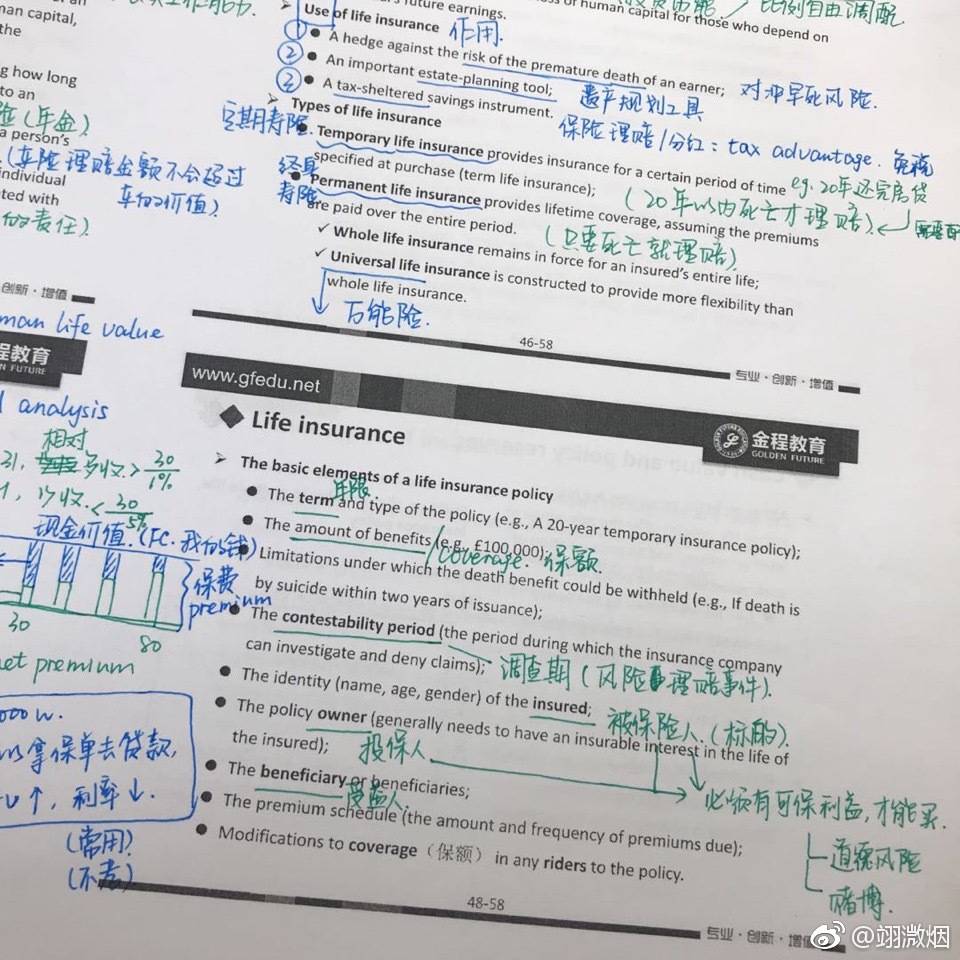 human capital,
the
g how long
to an
险(年金)
a person's
(车险理赔金额不会超过
车的价值)
individual
ted with
的责任)
创新·增值
man life value
金程教育
N FUTURE
analysis
相对
多收 > 30/1%
少收 < 30/5%
现金价值.(FC.我的钱)
保费
premium
30
80
net premium
000w.
以拿保单去贷款,
↑, 利率↓.
(常用)
(不考)
future earnings.
human capital for those who depend on
比例自由调配
Use of life insurance 作用.
① A hedge against the risk of the premature death of an earner; 对冲早死风险.
② An important estate-planning tool; 遗产规划工具
③ A tax-sheltered savings instrument. 保险理赔/分红: tax advantage. 免税
Types of life insurance
定期寿险
Temporary life insurance provides insurance for a certain period of time eg. 20年还完房贷
specified at purchase (term life insurance); (20年以内死亡才理赔).
终身
寿险
Permanent life insurance provides lifetime coverage, assuming the premiums
are paid over the entire period. (只要死亡就理赔)
✓ Whole life insurance remains in force for an insured's entire life;
✓ Universal life insurance is constructed to provide more flexibility than
whole life insurance.
万能险.
46-58
专业·创新·增值
www.gfedu.net
金程教育
GOLDEN FUTURE
Life insurance
The basic elements of a life insurance policy
年限
The term and type of the policy (e.g., A 20-year temporary insurance policy);
The amount of benefits (e.g., £100,000);
/coverage. 保额
Limitations under which the death benefit could be withheld (e.g., If death is
by suicide within two years of issuance);
The contestability period (the period during which the insurance company
can investigate and deny claims); 调查期(风险理赔事件).
The identity (name, age, gender) of the insured; 被保险人.(标的).
The policy owner (generally needs to have an insurable interest in the life of
the insured); 投保人
必须有可保利益,才能买.
道德风险
赌博.
The beneficiary or beneficiaries;
受益人.
The premium schedule (the amount and frequency of premiums due);
Modifications to coverage（保额）in any riders to the policy.
48-58
专业·创新·增值
@翊溦烟